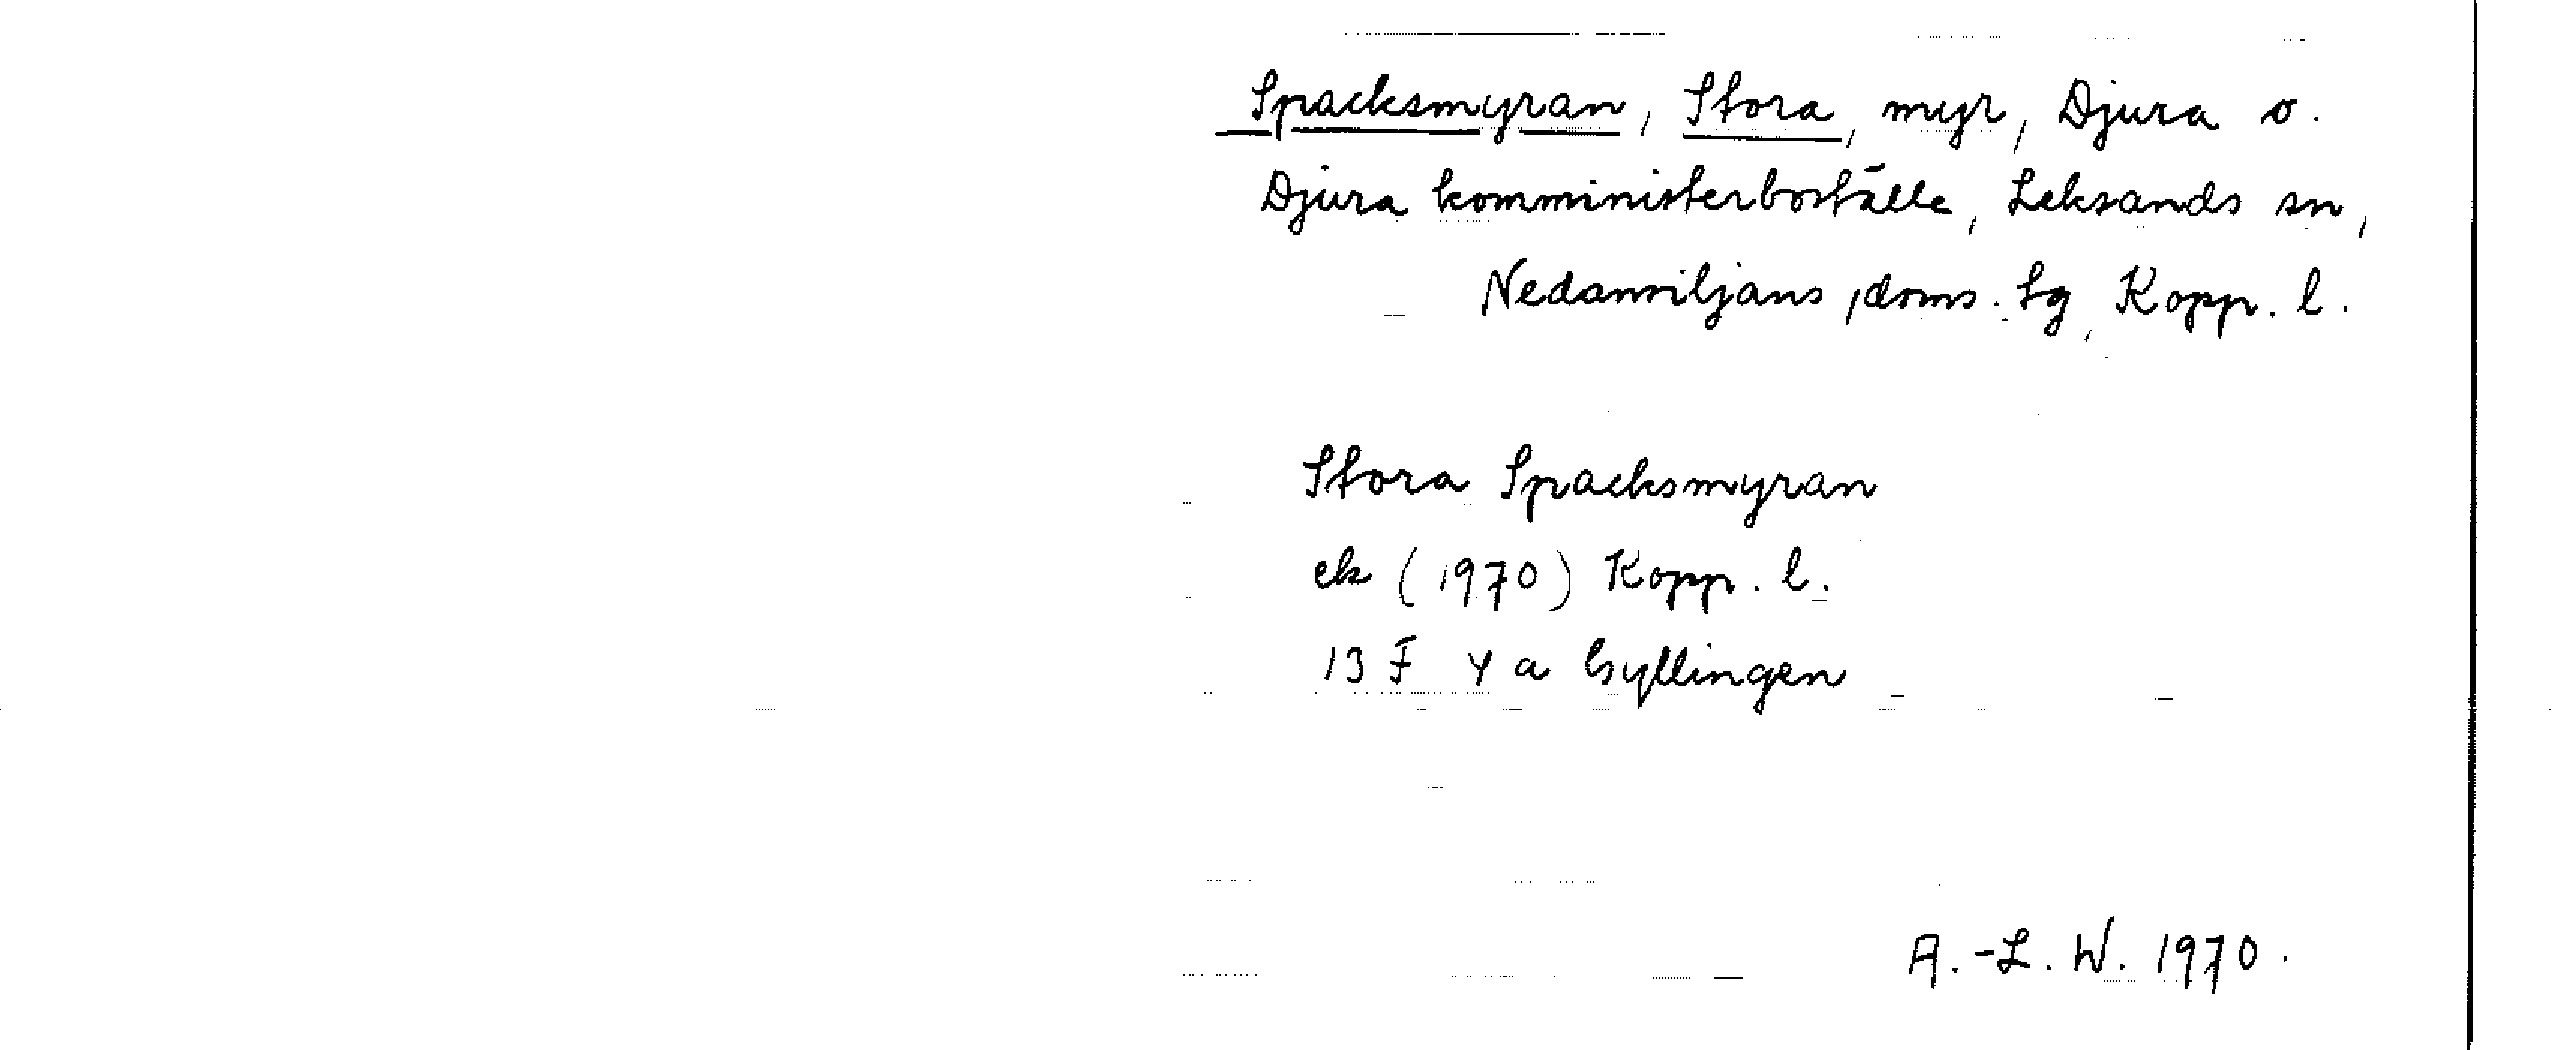 Spacksmyran, Stora, myr, Djura o.
Djura komministerboställe, Leksands sn,
Nedansiljans doms. tg, Kopp. l.
Stora Spacksmyran
ek (1970) Kopp. l.
13 F Y a Gyllingen
A.-L. W. 1970.